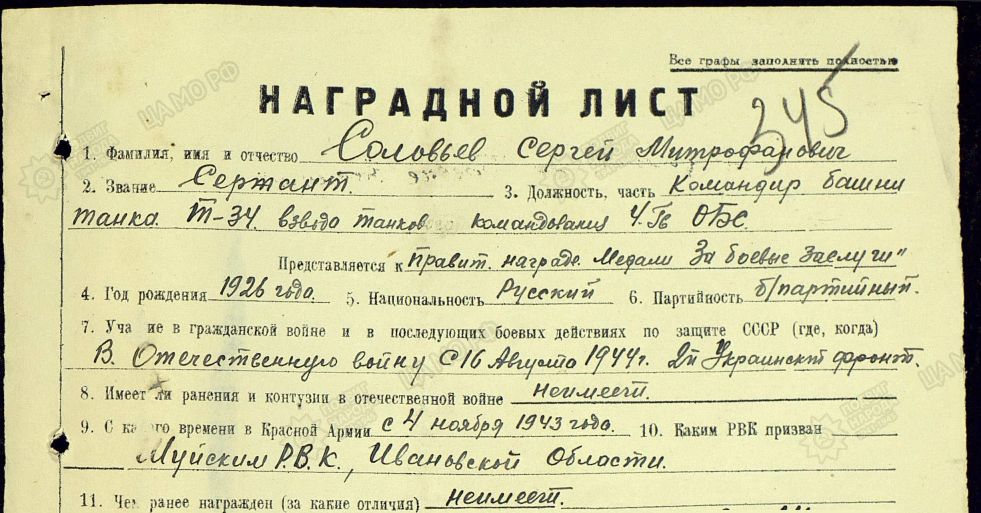 Все графы заполнить полностью
НАГРАДНОЙ ЛИСТ
345
1. Фамилия, имя и отчество Соловьев Сергей Митрофанович
2. Звание Сержант. 3. Должность, часть Командир башни
танка Т-34 взвода танков командования 4 Гв ОБС.
Представляется к правит. награде Медали "За боевые заслуги"
4. Год рождения 1926 года. 5. Национальность Русский 6. Партийность б/партийный.
7. Уча ие в гражданской войне и в последующих боевых действиях по защите СССР (где, когда)
В Отечественную войну с 16 Августа 1944г. 2й Украинский фронт.
8. Имеет ли ранения и контузии в отечественной войне неимеет.
9. С ка го времени в Красной Армии с 4 ноября 1943 года. 10. Каким РВК призван
Муйским Р.В.К., Ивановской Области.
11. Чем ранее награжден (за какие отличия) неимеет.